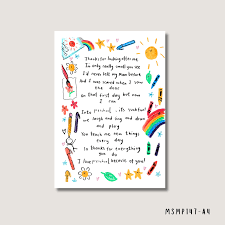 Thanks for looking after me
I'm only really small you see
I'd never left my Mum before
And I was scared when I saw
the door
On that first day but now
I run
Into preschool ...its such fun!
We laugh and sing and draw
and play
You teach me new things
every day
So thanks for everything
you do
I love preschool because of you!
MSMP147-A4